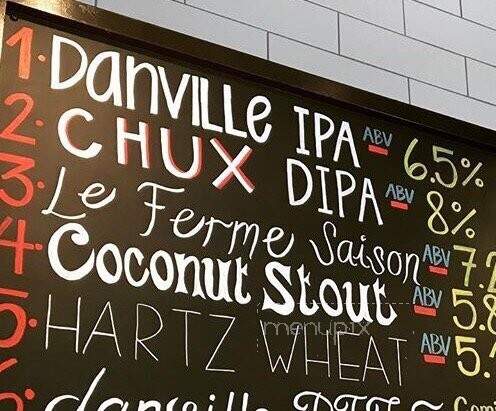 1. Danville IPA ABV 6.5%
2. CHUX DIPA ABV 8%
3. Le Ferme Saison ABV 7.2
4. Coconut Stout ABV 5.8
5. HARTZ WHEAT ABV 5.
menupix
6. danville